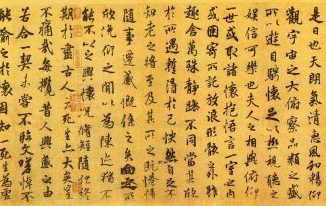 是日也天朗氣清惠風和暢仰
觀宇宙之大俯察品類之盛
所以遊目騁懷足以極視聽之
娛信可樂也夫人之相與俯仰
一世或取諸懷抱悟言一室之內
或因寄所託放浪形骸之外雖
趣舍萬殊靜躁不同當其欣
於所遇蹔得於己怏然自足不
知老之將至及其所之既惓情
隨事遷感慨係之矣向之所
欣俛仰之閒以為陳迹猶不
能不以之興懷況脩短隨化終
期於盡古人云死生亦大矣豈
不痛哉每攬昔人興感之由
若合一契未嘗不臨文嗟悼不
能喻之於懷固知一死生為虛